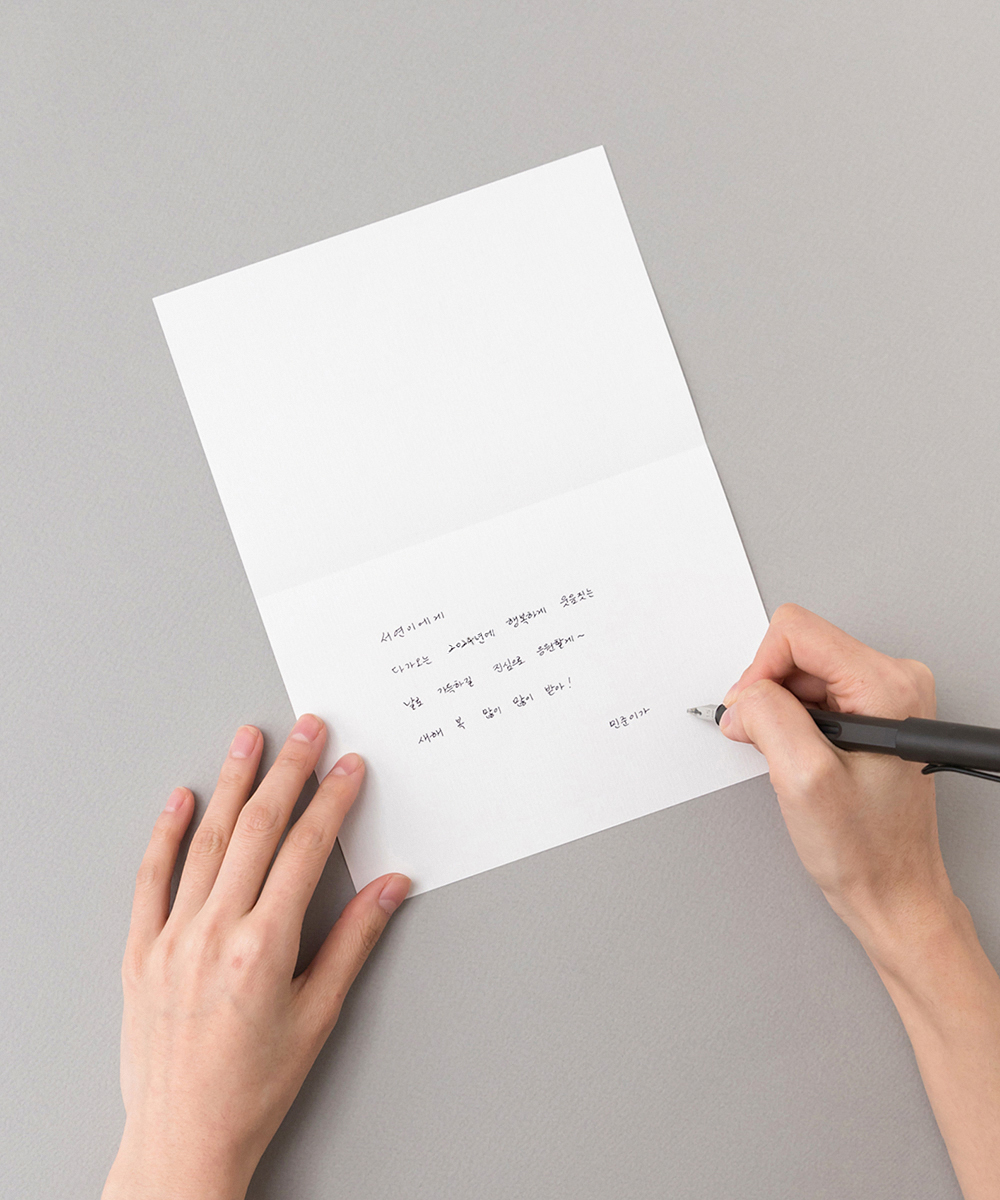 서연이에게
다가오는 2024년에 행복하게 웃음짓는
날로 가득하길 진심으로 응원할게~
새해 복 많이 많이 받아!
민준이가